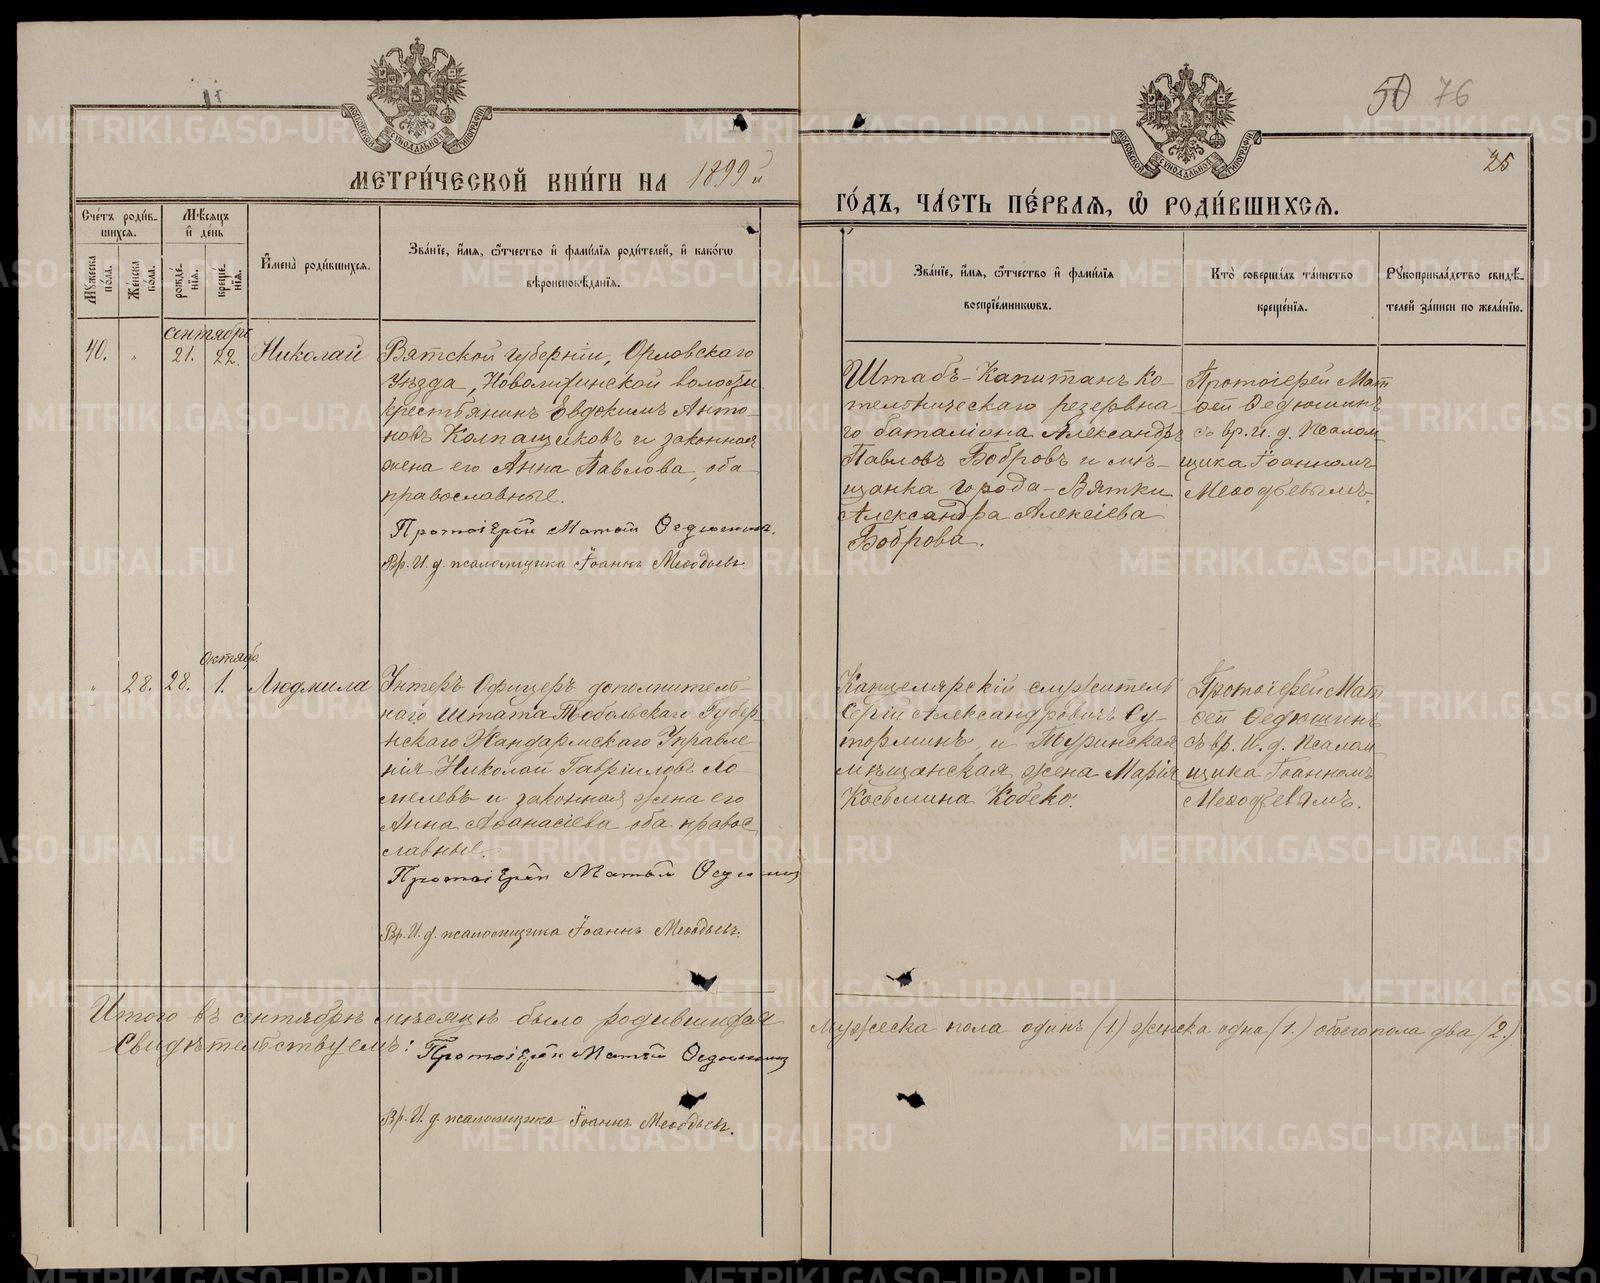 50 76
25
МЕТРИ́ЧЕСКОЙ КНИ́ГИ НА 1899й
ГО́ДЪ, ЧА́СТЬ ПЕ́РВАЯ, Ѡ РОДИ́ВШИХСЯ.
Сче́тъ роди́вшихся.
Мѣ́сяцъ и҆ де́нь
Мꙋ́жеска по́ла.
Же́нска по́ла.
рожде́нїя.
креще́нїя.
И҆мена̀ роди́вшихся.
Зва́нїе, и҆́мя, ѻ҆́тчество и҆ фами́лїя роди́телей, и҆ како́гѡ
вѣроисповѣ́данїя.
Зва́нїе, и҆́мя, ѻ҆́тчество и҆ фами́лїя
воспрїе́мниковъ.
Кто̀ соверша́лъ та́инство
креще́нїя.
Рꙋкоприкла́дство свидѣ́-
телей за́писи по жела́нїю.
Сентябрь
40. " 21. 22. Николай
Вятской губерніи, Орловскаго
уѣзда, волости
крестьянинъ Евдокимъ Анто-
новъ Колпащиковъ и законная
жена его Анна Павлова, оба
православные.
Протоіерей Матѳій Ѳедюшинъ.
Вр. И. д. псаломщика Іоаннъ Меѳодьевъ
Штабъ-Капитанъ Ко-
тельническаго резервна-
го баталіона Александръ
Павловъ Бобровъ и мѣ-
щанка города Вятки
Александра Алексіева
Боброва.
Протоіерей Мат
ѳей Ѳедюшинъ
съ вр. и. д. псалом
щика Іоанномъ
Меѳодьевымъ.
Октябр.
" 28. 28. 1. Людмила
Унтеръ Офицеръ дополнитель-
наго Штата Тобольскаго Губер-
нскаго Жандармскаго Управле-
нія Николай Гавріиловъ Ло-
мелевъ и законная жена его
Анна Аѳанасіева оба правос
лавные.
Протоіерей Матѳій Ѳедюшинъ
Вр. И. д. псаломщика Іоаннъ Меѳодьевъ.
Канцелярскій служитель
Сергій Александровичъ Су-
торминъ и Туринская
мѣщанская жена Марія
Косьмина Кобеко.
Протоіерей Мат
ѳей Ѳедюшинъ
съ вр. И. д. псалом
щика Іоанномъ
Меѳодьевымъ.
Итого въ сентябрѣ мѣсяцѣ было родившихся мужеска пола одинъ (1) женска одна (1.) обоего пола два (2.)
Свидѣтельствуемъ: Протоіерей Матѳій Ѳедюшинъ
Вр. И. д. псаломщика Іоаннъ Меѳодьевъ.
METRIKI.GASO-URAL.RU